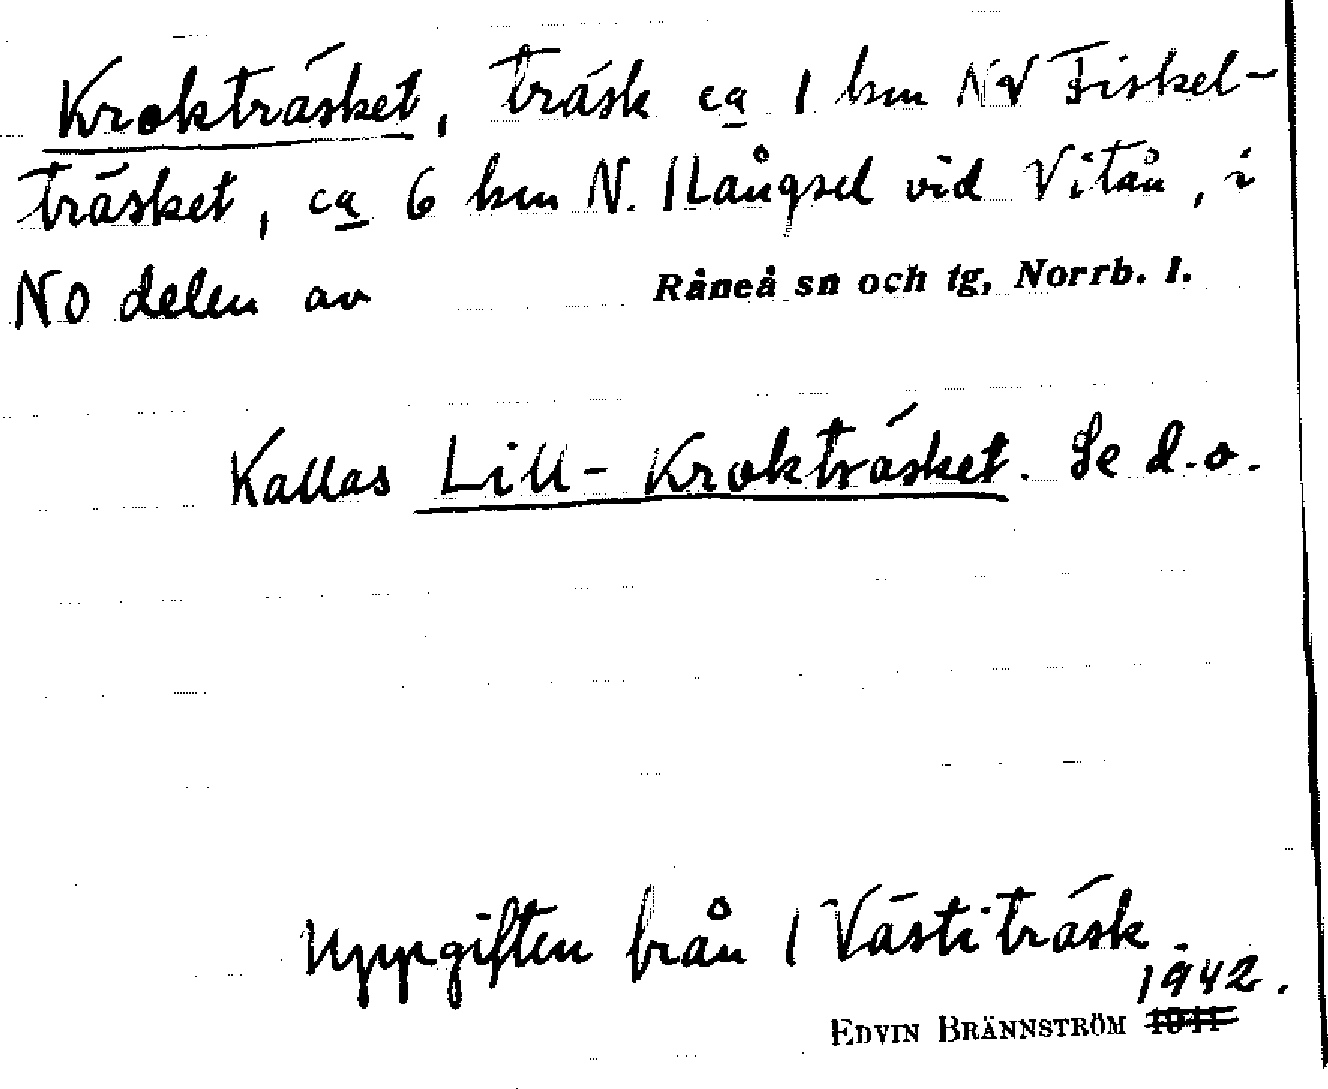 Krokträsket, träsk ca 1 km NV Fiskel-
träsket, ca 6 km N. 1 Långsel vid Vitån, i
NO delen av Råneå sn och tg, Norrb. l.
Kallas Lill-Krokträsket. Se d.o.
Uppgiften från 1 Västiträsk.
1942.
EDVIN BRÄNNSTRÖM 1941